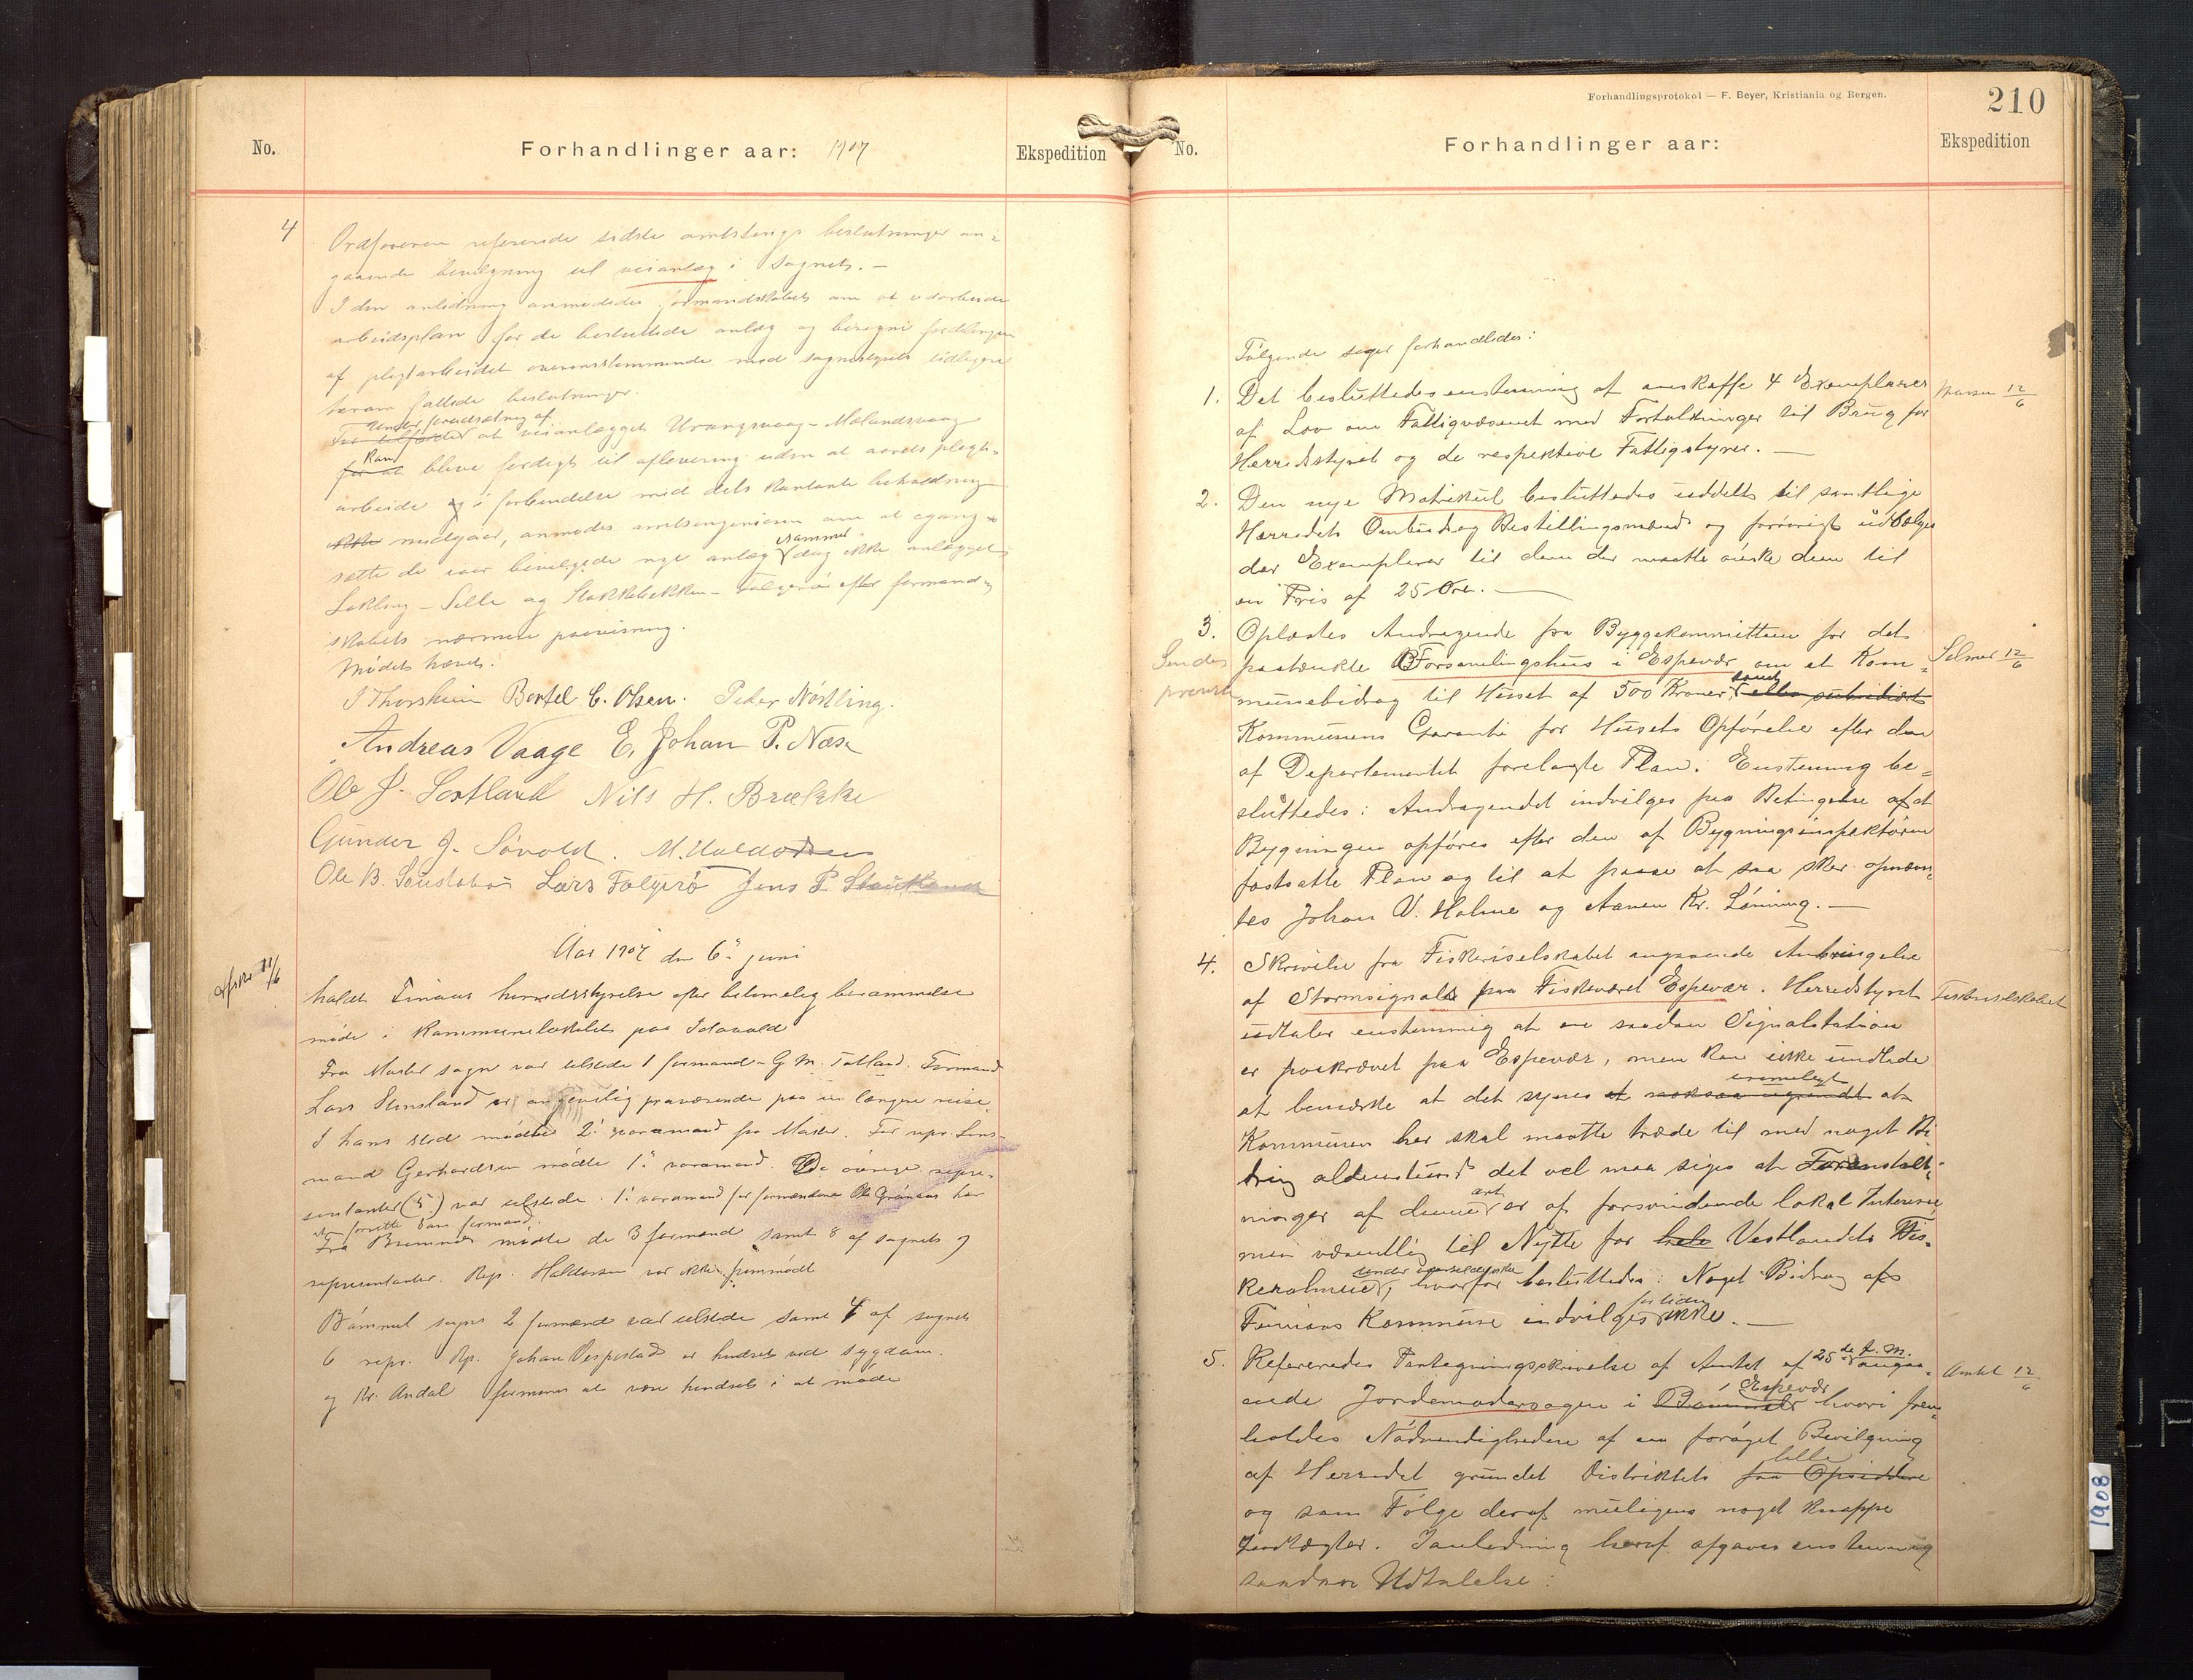 No.
Forhandlinger aar: 1907
Ekspedition
4
Ordføreren refererede sidste amtstings beslutninger an-
gaaende bevilgning til veianlæg i sognet. -
I den anledning anmodedes formandskabet om at udarbeide
arbeidsplan for de besluttede anlæg og beregne fordelingen
af pligtarbeidet overensstemmende med sognestyrets tidligere
herom fattede beslutninger.
Under forudsætning af
at veianlægget Urangsvaag - Mælandsvaag
Kand
for at blive færdigt til aflevering uden at aarets pligt-
arbeide og i forbindelse med dets kontante beholdning
ikke medgaar, anmodes amtsingeniøren om at igang-
sætte de iaar bevilgede nye anlæg, dog ikke anlægget
Lykling - Selle og Stokkebækken - Folgerø efter formand-
skabets nærmere paavisning.
Mødet hævet.
J Thorsheim Bertel C. Olsen. Peder Nøstling.
Andreas Vaage E. Johan P. Næss
Ole J. Sortland Nils H. Brække
Gunder J. Søvold. M. Haldorsen
Ole B. Lars Folgerø Jens P.
Aar 1907 den 6. juni
holdt Finaas herredsstyrelse efter lovmelig berammelse
møde i kommunelokalet paa Idavold
Fra Moster sogn var tilstede 1 formand - G M. Totland. Formand
Lars Stensland er angivelig fraværende paa en længere reise.
I hans sted mødte 2. varamand fra Moster. For repr. Lens-
mand Gerhardsen mødte 1. varamand. De øvrige repre-
sentanter (5) var tilstede. 1. varamand for formændene Ole Grønaas har
Fra Bremnes mødte de 3 formænd samt 8 af sognets 9
representanter. Rep. Haldorsen var ikke fremmødt
Bømmel sogns 2 formænd var tilstede samt 4 af sognets
6 repr. Rp. Johan Vespestad er hindret ved sygdom.
og Kr. Andal formenes at være hindret i at møde
Forhandlingsprotokol — F. Beyer, Kristiania og Bergen.
210
No.
Forhandlinger aar:
Ekspedition
Følgende sager forhandledes:
1. Det besluttedes enstemmig at anskaffe 4 Exemplarer 12/6
af Lov om Fattigvæsenet med Fortolkninger til Brug for
Herredsstyret og de respektive Fattigstyrer. —
2. Den nye Matrikul besluttedes uddelt til samtlige
Herredets Ombuds og Bestillingsmænd og forøvrigt udsælges
der Exemplarer til dem der maatte ønske dem til
en Pris af 25 Øre. —
3. Oplæstes Andragende fra Byggekommitteen for det
Sendes
paatænkte Forsamlingshus i Espevær om et Kom- Selmer 12/6
samt
munebidrag til Huset af 500 Kroner eller subsidiært
Kommunens Garanti for Husets Opførelse efter den
af Departementet forelagte Plan. Enstemmig be-
sluttedes: Andragendet indvilges paa Betingelse af at
Bygningen opføres efter den af Bygningsinspektøren
fastsatte Plan og til at paase at saa sker opnævn-
tes Johan V. Holme og Aanen Kr. Lønning. —
4. Skrivelse fra Fiskeriselskabet angaaende Anbringelse
af Stormsignaler paa Fiskeværet Espevær. Herredsstyret Fiskeriselskabet
udtaler enstemmig at en saadan Signalstation
er paakrævet paa Espevær, men kan ikke undlade
urimeligt
at bemærke at det synes at
Kommunen her skal maatte træde til med noget Bi-
drag aldenstund det vel maa siges at Foranstalt-
art
ninger af denne er af forsvindende lokal Interesse
men væsentlig til Nytte for hele Vestlandets Fis-
kerialmue, hvorfor besluttedes: Noget Bidrag af
for tiden
Finaas Kommune indvilges ikke. —
5. Refereredes Paategningsskrivelse af Amtet af 25de f. m. angaa- Amtet 12/6
Espevær
ende Jordemodersagen i Bømmel hvori frem-
holdes Nødvendigheden af en forøget Bevilgning
lille
af Herredet grundet Distriktets faa Opsiddere
og som Følge deraf muligens noget knappe
Indtægter. I anledning heraf afgaves enstemmig
saadan Udtalelse:
1908